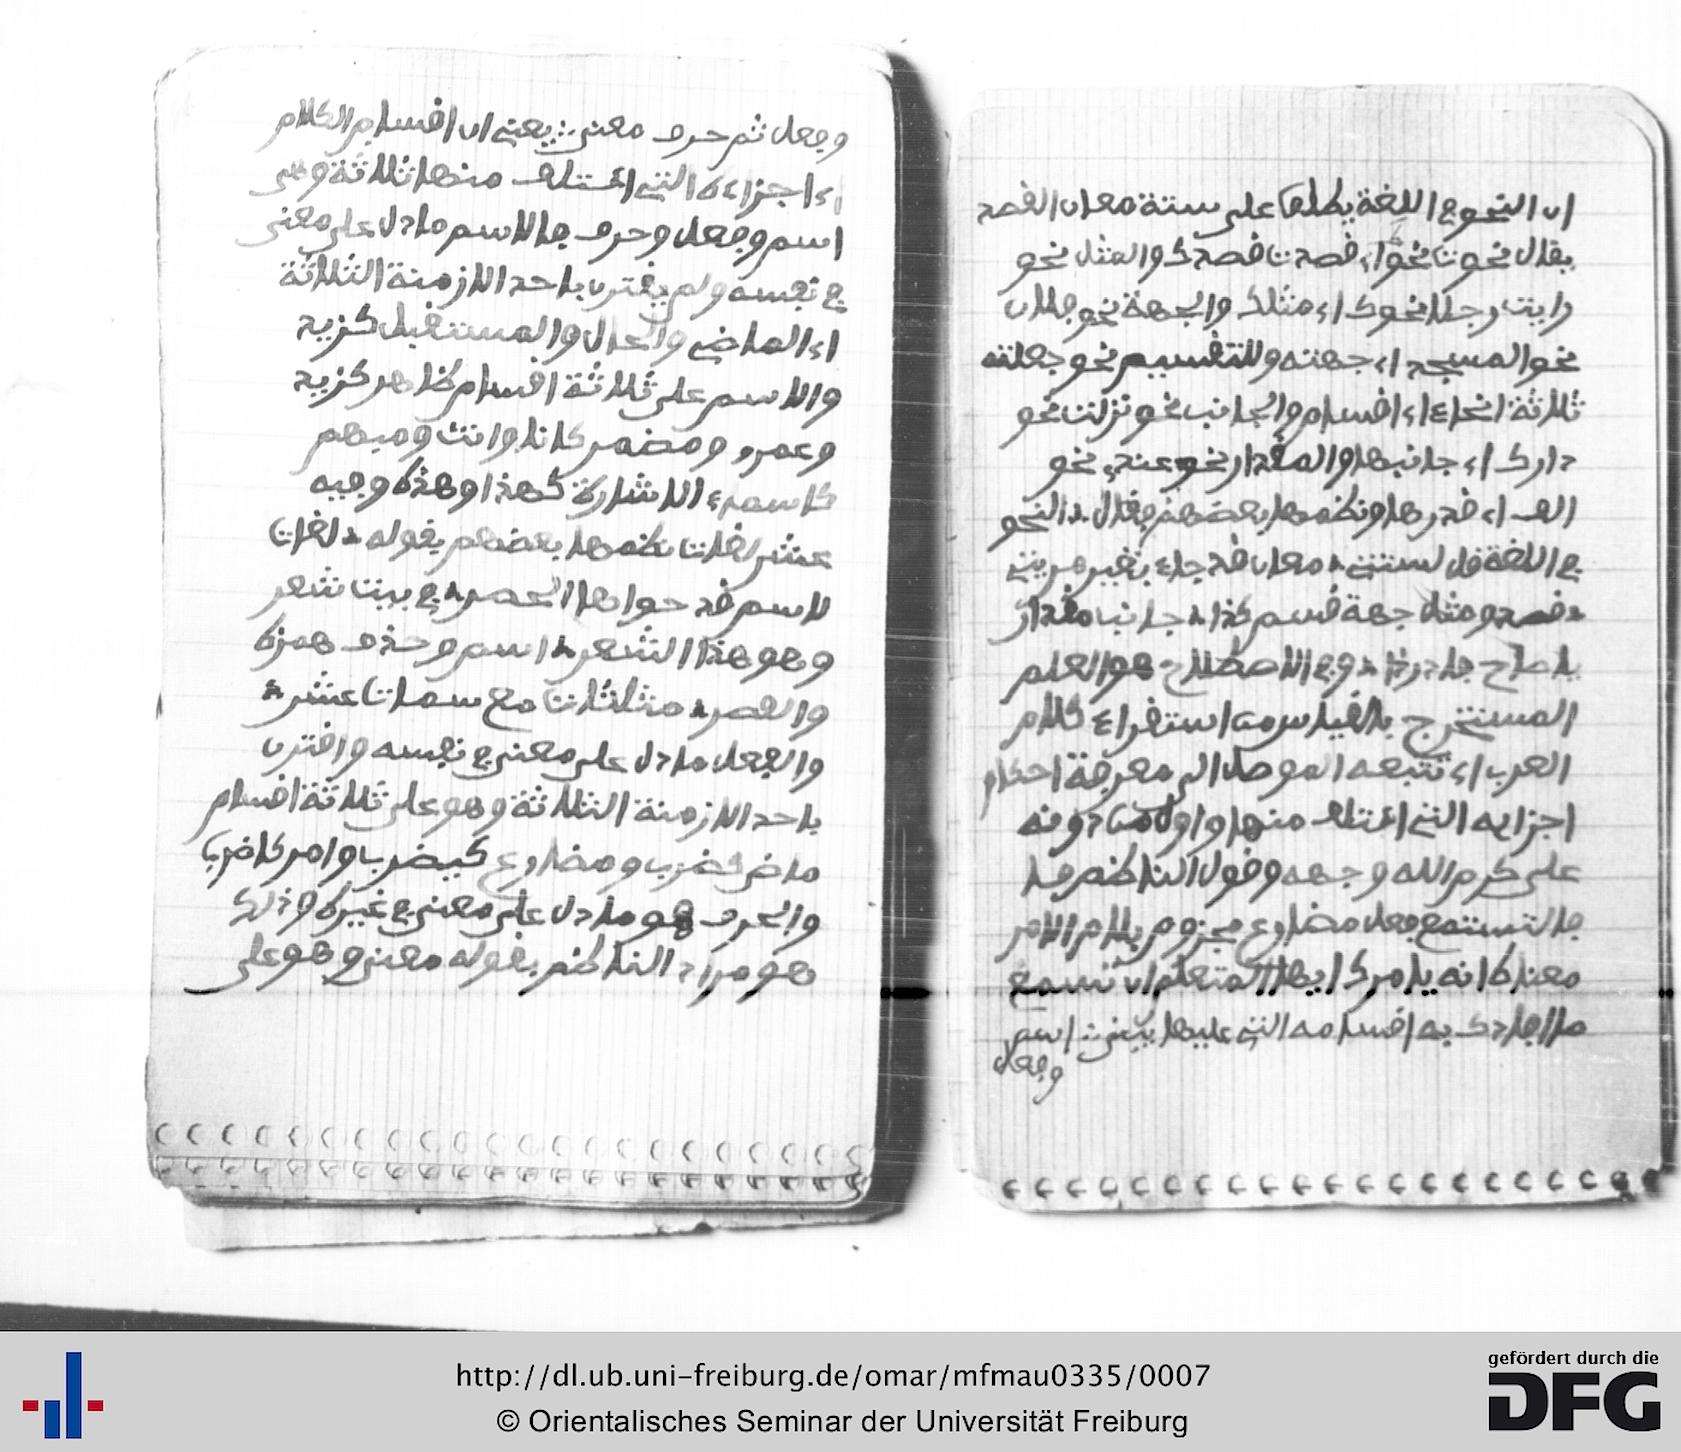 ان النحو في اللغة يطلق على ستة معان القصد
يقال نحوت نحوا اي قصدت قصدك والمثل نحو
رايت رجلا نحوك اي مثلك والجهة نحو جلان
نحو المسجد اي جهته وللتقسيم نحو جعلته
ثلاثة انحاء اي اقسام والجانب نحو نزلت نحو
دارك اي جانبها والمقدار نحو عندي نحو
الف اي قدرها ونظمها بعضهم فقال النحو
في اللغة قل لستة معان قد جاء بغير مريتي
قصد ومثل جهة قسم كذا جانب مقدار
يا صاح فادر ذا وفي الاصطلاح هو العلم
المستخرج بالقياس من استقراء كلام
العرب اي تتبعه الموصل الى معرفة احكام
اجزايه التي ائتلف منها واول من دونه
علي كرم الله وجهه وقول الناظم
فالتستمع فعل مضارع مجزوم بلام الامر
معناه انه يامرك ايها المتعلم ان تسمع
ما افادك به اقسامه التي عليها يبنى اسم
وفعل
وفعل ثم حرف معنى يعني ان اقسام الكلام
اي اجزاءه التي ائتلف منها ثلاثة وهي
اسم وفعل وحرف فالاسم ما دل على معنى
في نفسه ولم يقترن باحد الازمنة الثلاثة
اي الماضي والحال والمستقبل كزيد
والاسم على ثلاثة اقسام ظاهر كزيد
وعمرو ومضمر كانا وانت ومبهم
كاسماء الاشارة كهذا وهذه وفيه
عشر لغات نظمها بعضهم بقوله لغات
لاسم قد حواها الحصر في بيت شعر
وهو هذا الشعر اسم وحذف همزة
والقصر مثلثات مع سمات عشر
والفعل ما دل على معنى في نفسه واقترن
باحد الازمنة الثلاثة وهو على ثلاثة اقسام
ماض كضرب ومضارع كيضرب وامر كاضرب
والحرف هو ما دل على معنى في غيره وذلك
هو مراد الناظم بقوله معنى وهو على
http://dl.ub.uni-freiburg.de/omar/mfmau0335/0007
© Orientalisches Seminar der Universität Freiburg
gefördert durch die
DFG